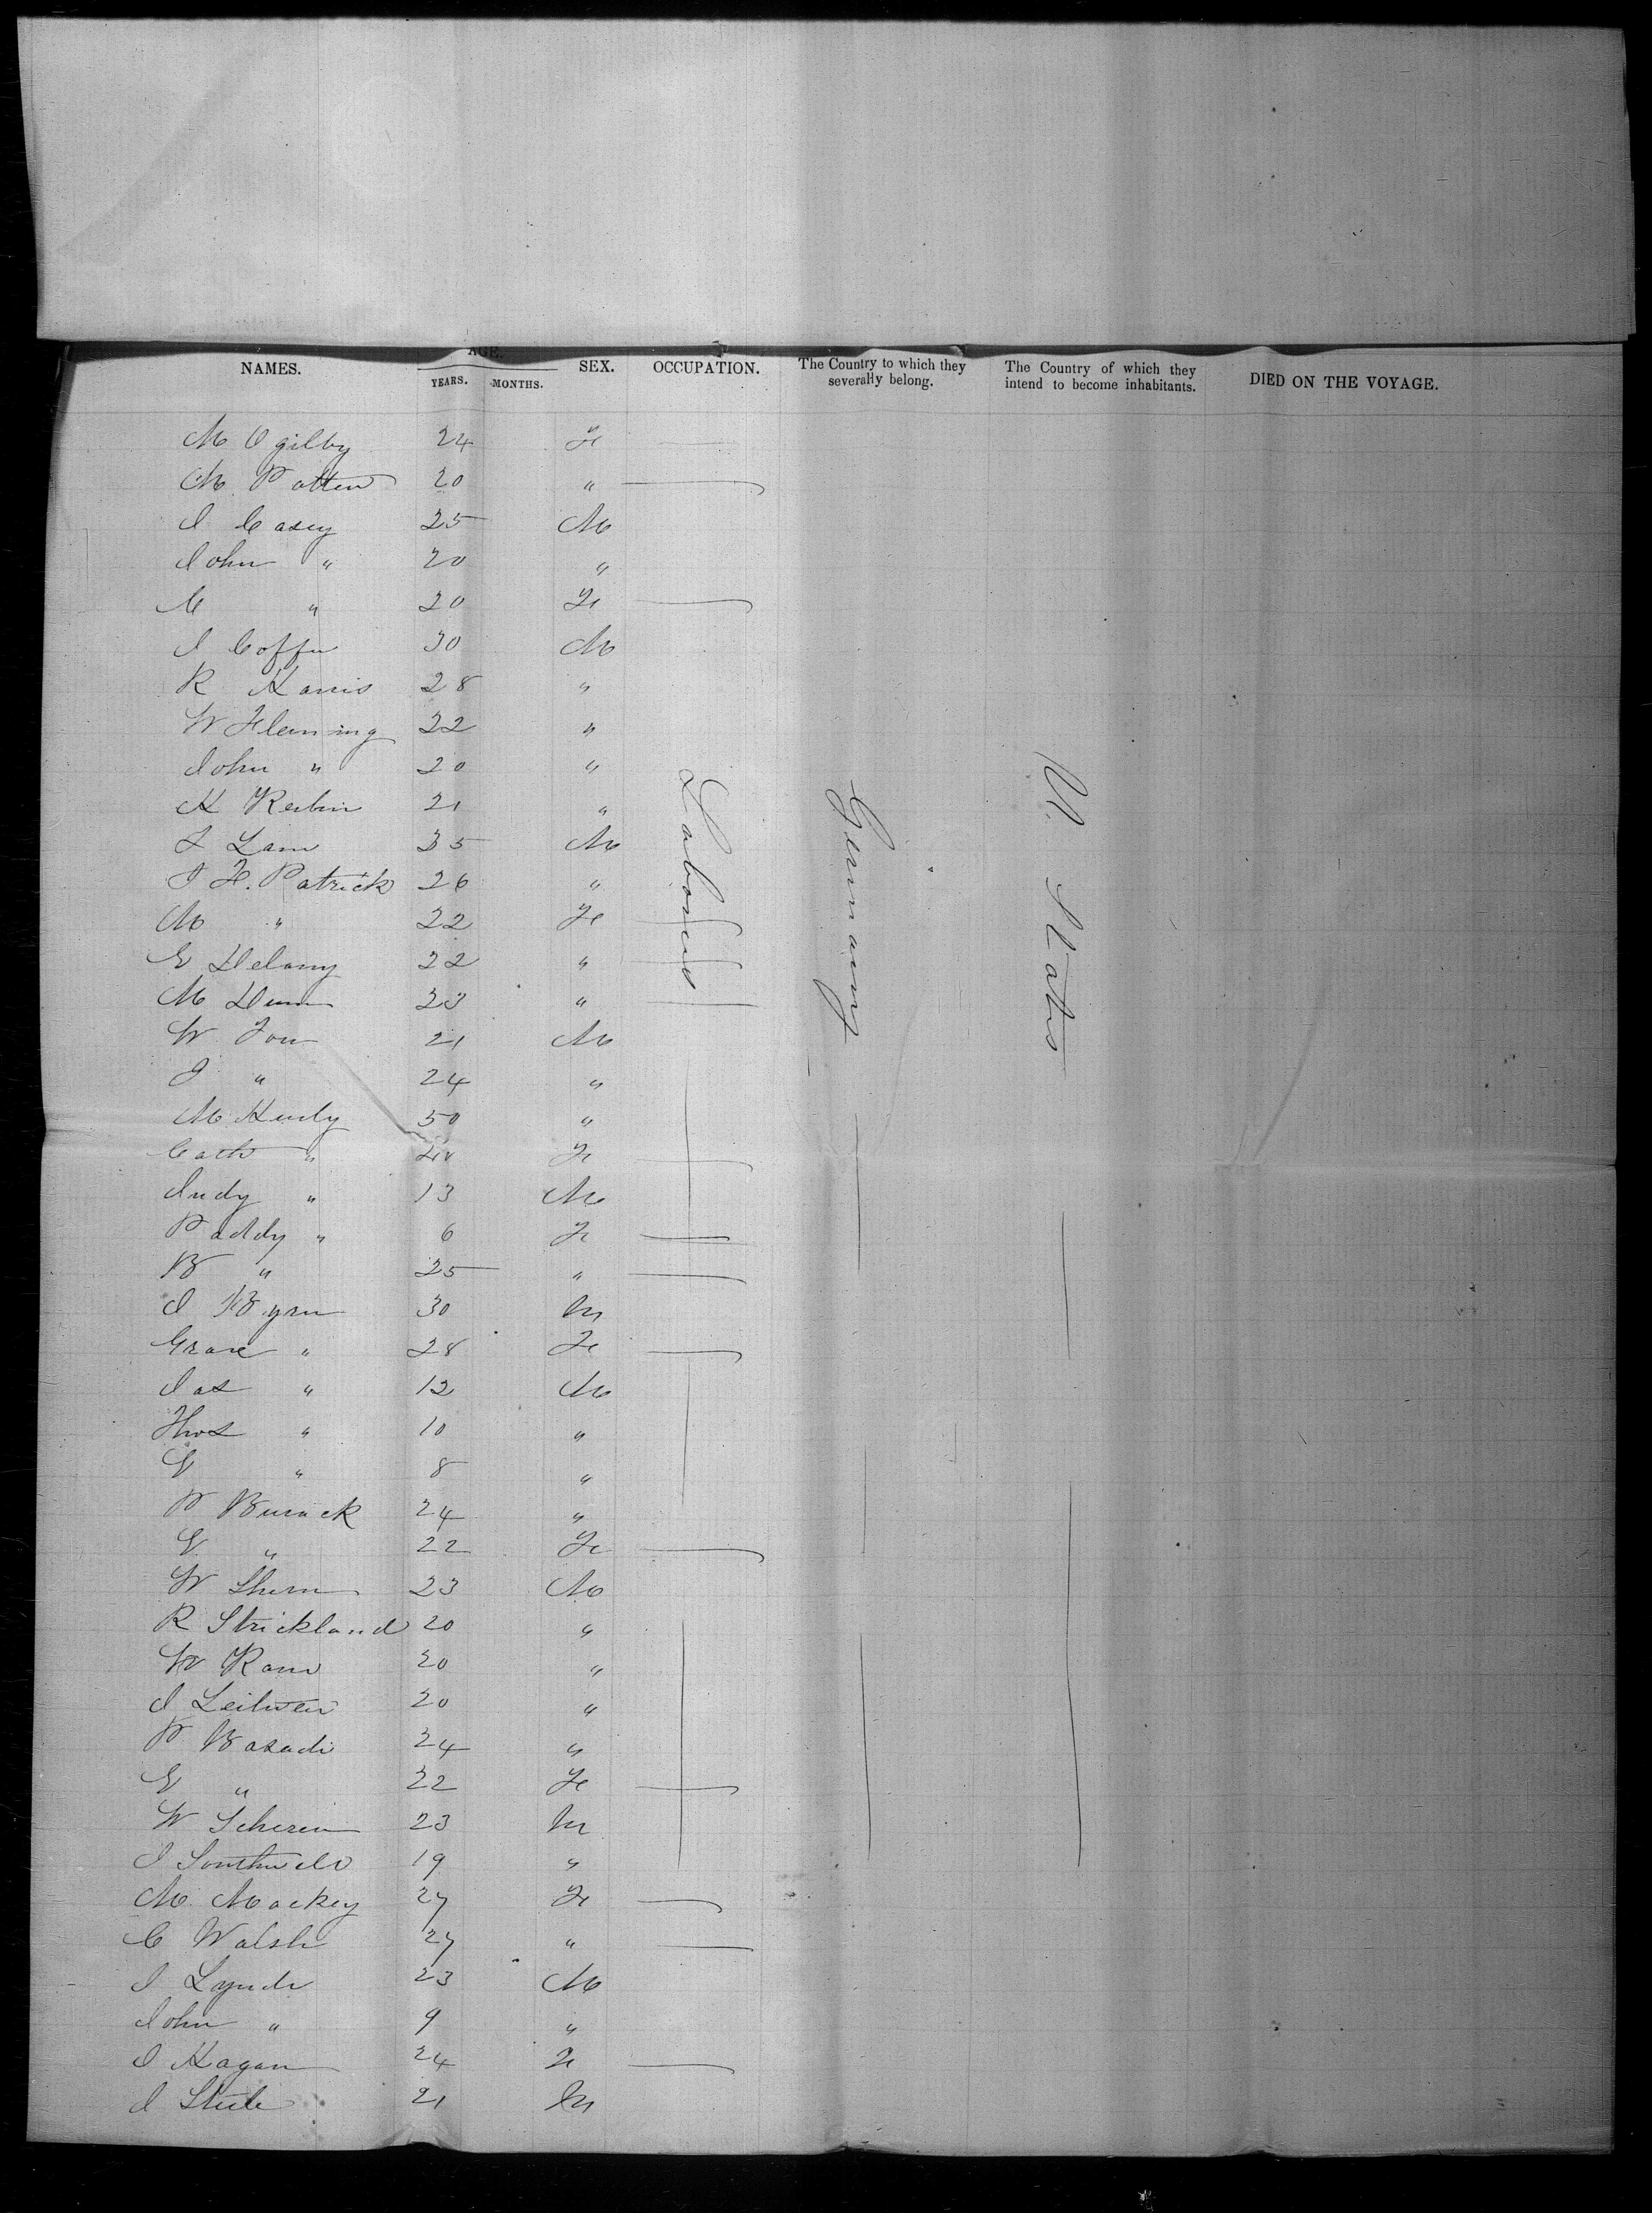 NAMES. AGE. YEARS. MONTHS. SEX. OCCUPATION. The Country to which they severally belong. The Country of which they intend to become inhabitants. DIED ON THE VOYAGE.
M Ogilby 24 Fe
M Patten 20 "
J Casey 25 M
John " 20 "
M " 20 Fe
J Coffee 30 M
R Harris 28 "
W Fleming 22 "
John " 20 "
H 21 "
Lane 35 M
J F. Patrick 26 "
M " 22 Fe
E Delany 22 "
M Dunn 23 "
W 21 M
J " 24 "
M 50 "
Cath " 40 Fe
Judy " 13 M
Paddy " 6 Fe
B " 25 "
J Byrn 30 M
Grace " 28 Fe
Jas " 12 M
Thos " 10 "
E " 8 "
P 24 "
E " 22 Fe
W 23 M
R Strickland 20 "
W 20 "
J 20 "
P 24 "
E " 22 Fe
W 23 M
J Southwell 19 "
M Mackey 27 Fe
C Walsh 27 "
J Lynch 23 M
John " 9 "
J Hagan 24 Fe
J Steele 21 M
Labourers
Germany
U. States